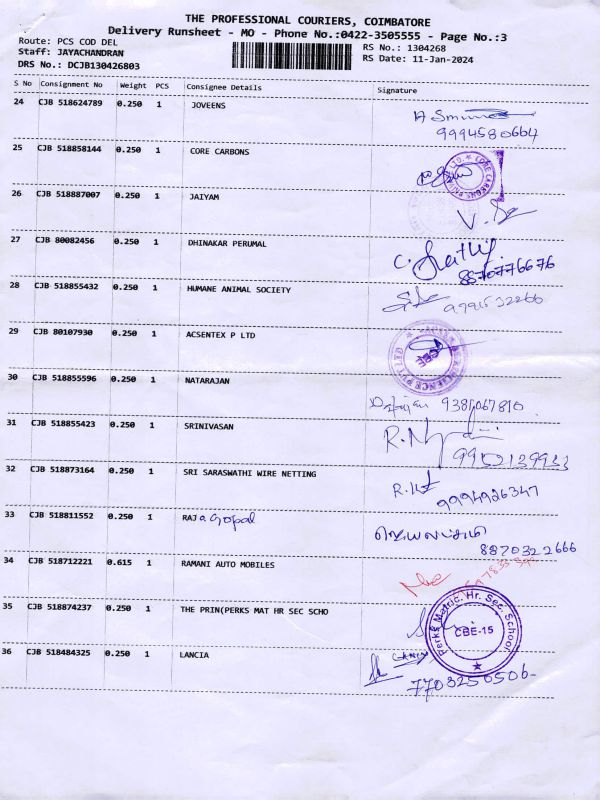 THE PROFESSIONAL COURIERS, COIMBATORE
Delivery Runsheet - MO - Phone No.:0422-3505555 - Page No.:3
Route: PCS COD DEL
RS No.: 1304268
Staff: JAYACHANDRAN
RS Date: 11-Jan-2024
DRS No.: DCJB130426803
S No Consignment No Weight PCS Consignee Details Signature
24 CJB 518624789 0.250 1 JOVEENS
9994580664
25 CJB 518858144 0.250 1 CORE CARBONS
26 CJB 518887007 0.250 1 JAIYAM
27 CJB 80082456 0.250 1 DHINAKAR PERUMAL
8870776676
28 CJB 518855432 0.250 1 HUMANE ANIMAL SOCIETY
29 CJB 80107930 0.250 1 ACSENTEX P LTD
CBE
30 CJB 518855596 0.250 1 NATARAJAN
31 CJB 518855423 0.250 1 SRINIVASAN
32 CJB 518873164 0.250 1 SRI SARASWATHI WIRE NETTING
9994926347
33 CJB 518811552 0.250 1 RAJa Gopal
8870322666
34 CJB 518712221 0.615 1 RAMANI AUTO MOBILES
35 CJB 518874237 0.250 1 THE PRIN(PERKS MAT HR SEC SCHO
Perks Matric. Hr. Sec. School
CBE-15
36 CJB 518484325 0.250 1 LANCIA
7703250506